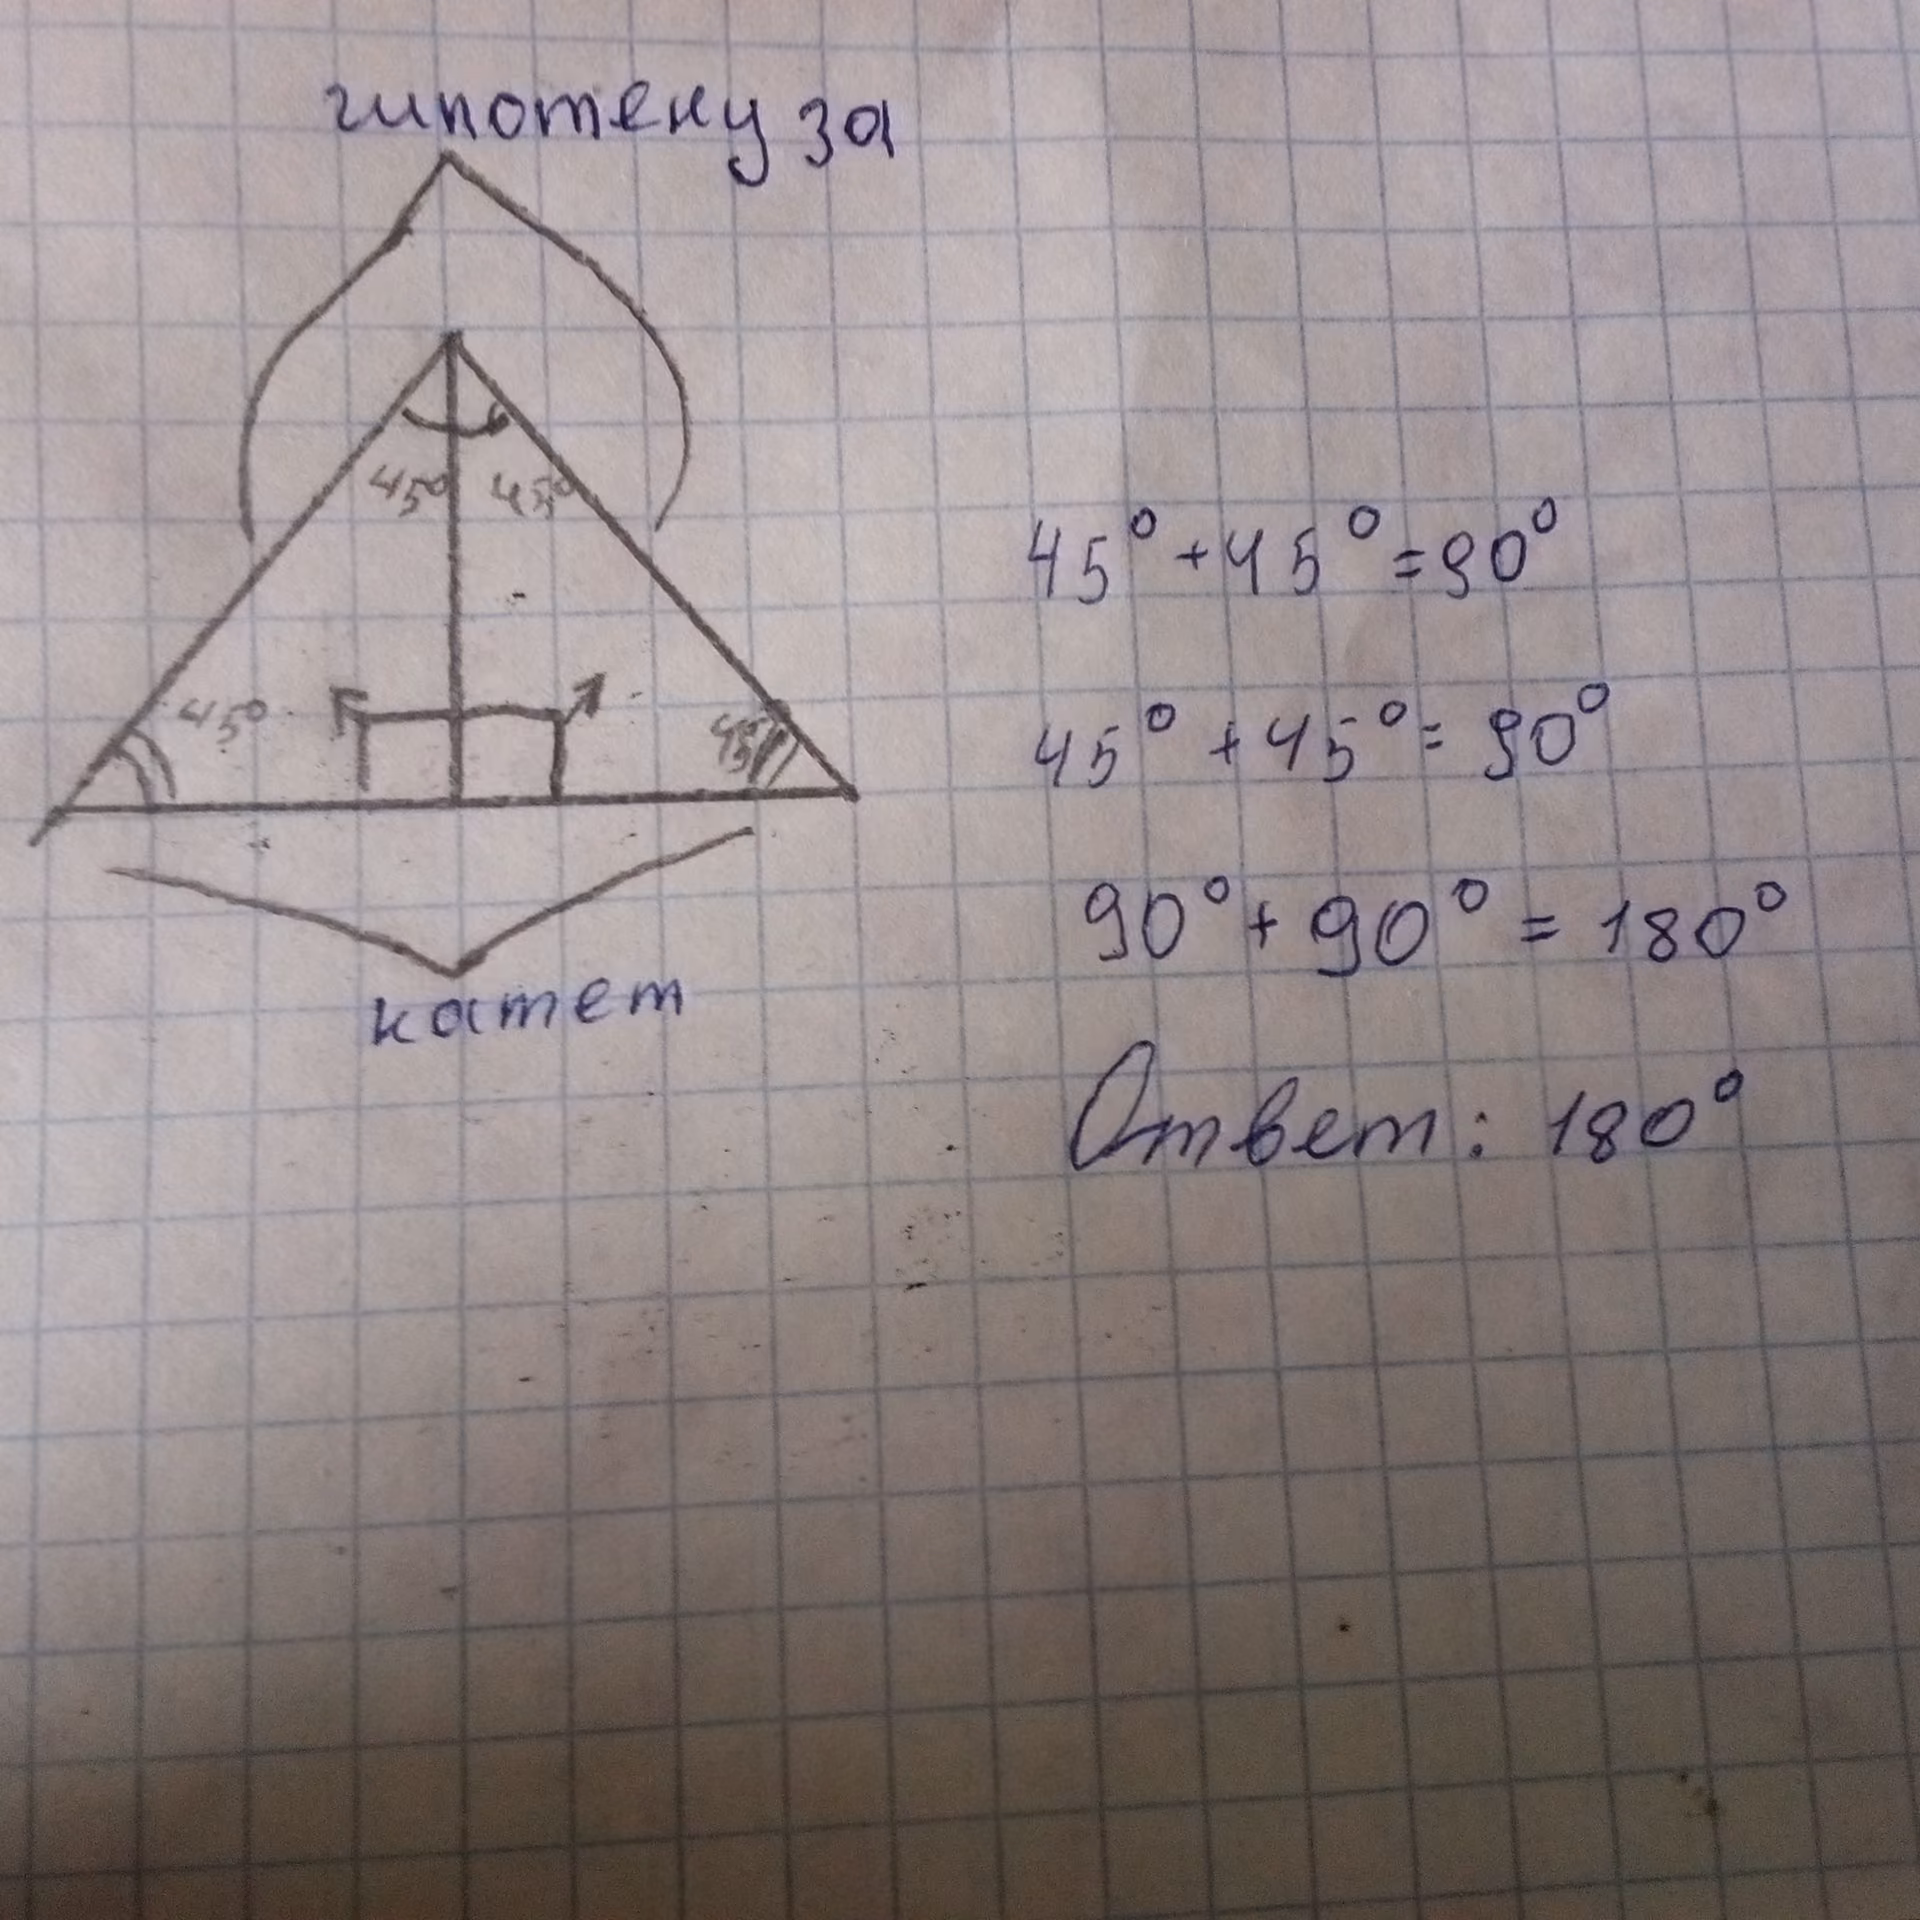 гипотенуза
45° 45°
45° 45°
катет
45° + 45° = 90°
45° + 45° = 90°
90° + 90° = 180°
Ответ: 180°